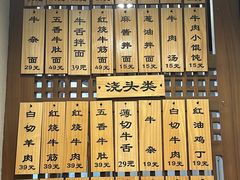 牛杂面
29元
五香牛肚面
49元
红烧牛筋面
49元
牛舌拌面
39元
麻酱拌面
15元
葱油拌面
15元
牛肉汤
15元
牛肉小馄饨
15元
浇头类
白切羊肉
红烧牛筋
39元
五香牛肚
39元
薄切牛舌
29元
牛杂
19元
白切牛肉
红油鸡丁